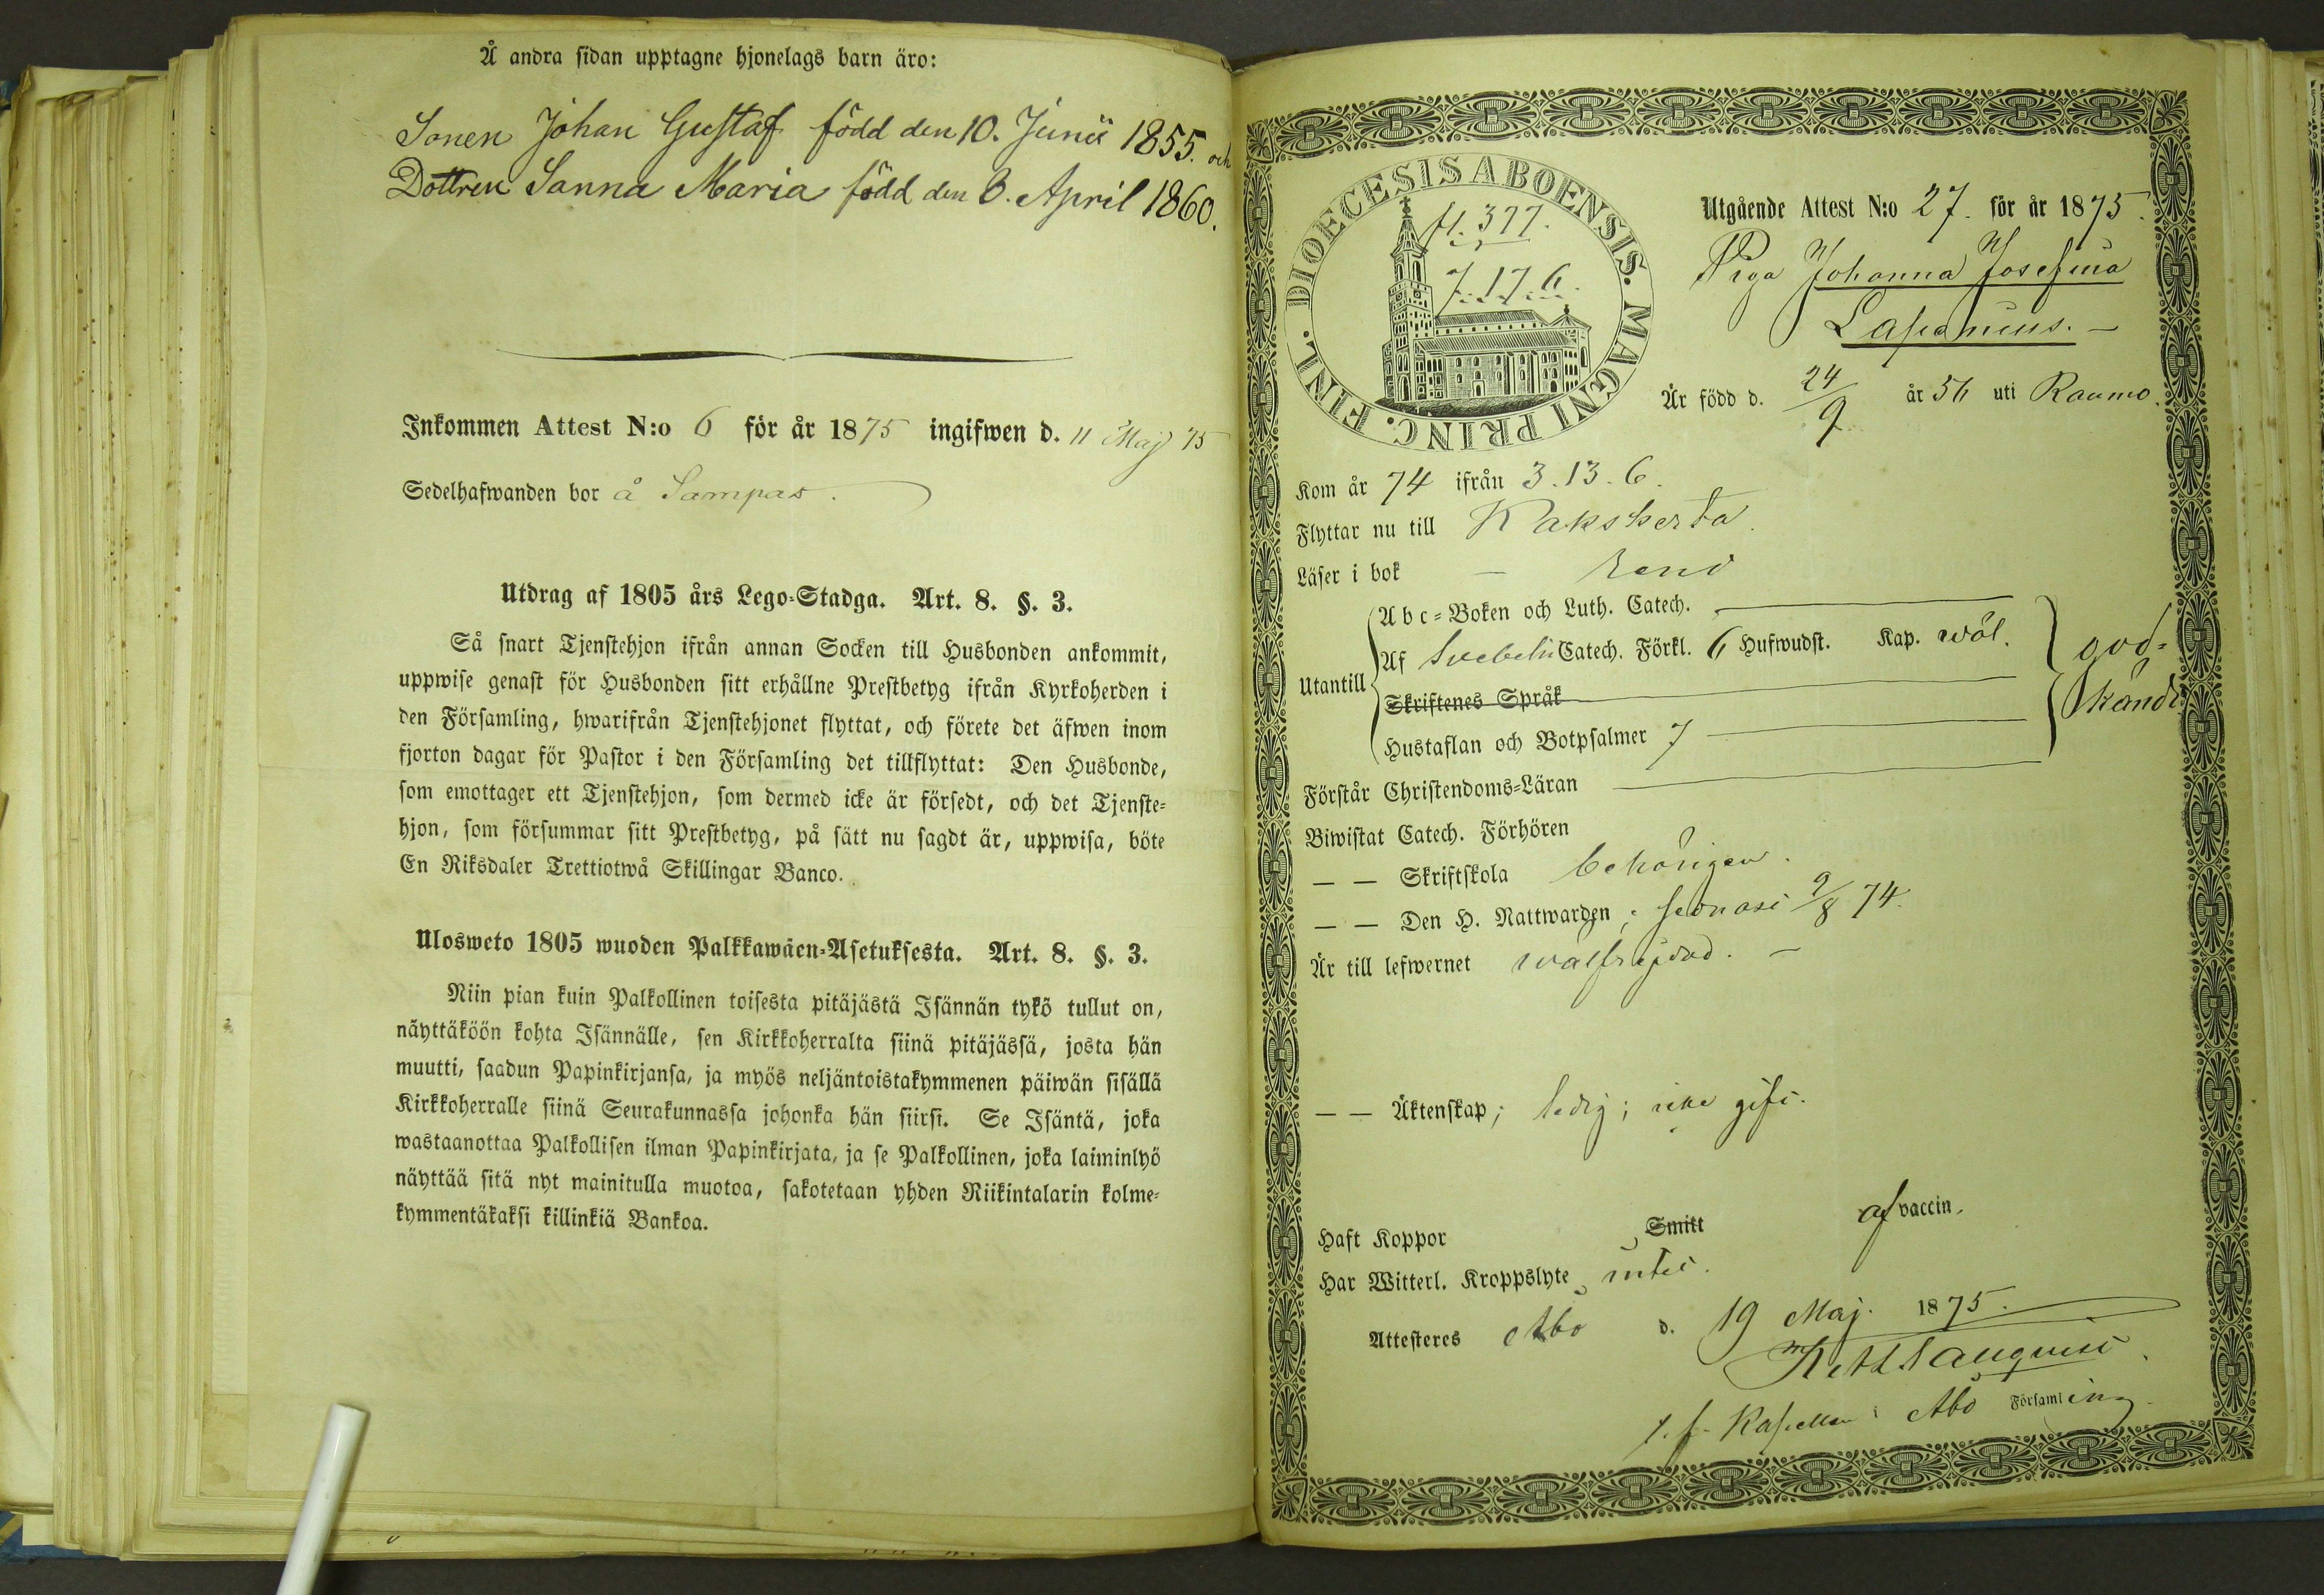 Å andra sidan upptagne hjonelags barn äro:
Sonen Johan Gustaf född den 10. Junii 1855. och
Dottren Sanna Maria född den 8. April 1860.
Inkommen Attest N:o 6 för år 1875 ingifwen d. 11 Maj 75
Sedelhafwanden bor å Sampas.
Utdrag af 1805 års Lego-Stadga. Art. 8. §. 3.
Så snart Tjenstehjon ifrån annan Socken till Husbonden ankommit,
uppwise genast för Husbonden sitt erhållne Prestbetyg ifrån Kyrkoherden i
den Församling, hwarifrån Tjenstehjonet flyttat, och förete det äfwen inom
fjorton dagar för Pastor i den Församling det tillflyttat: Den Husbonde,
som emottager ett Tjenstehjon, som dermed icke är försedt, och det Tjenste-
hjon, som försummar sitt Prestbetyg, på sätt nu sagdt är, uppwisa, böte
En Riksdaler Trettiotwå Skillingar Banco.
Ulosweto 1805 wuoden Palkkawäen-Asetuksesta. Art. 8. §. 3.
Niin pian kuin Palkollinen toisesta pitäjästä Isännän tykö tullut on,
näyttäköön kohta Isännälle, sen Kirkkoherralta siinä pitäjässä, josta hän
muutti, saadun Papinkirjansa, ja myös neljäntoistakymmenen päiwän sisällä
Kirkkoherralle siinä Seurakunnassa johonka hän siirsi. Se Isäntä, joka
wastaanottaa Palkollisen ilman Papinkirjata, ja se Palkollinen, joka laiminlyö
näyttää sitä nyt mainitulla muotoa, sakotetaan yhden Riikintalarin kolme-
kymmentäkaksi killinkiä Bankoa.
DIOECESIS ABOENSIS. MAGNI PRINC. FINL.
fl. 377.
7. 17. 6.
Utgående Attest N:o 27. för år 1875.
Piga Johanna Josefina
Är född d. 24/9 år 56 uti Raumo.
Kom år 74 ifrån 3. 13. 6.
Flyttar nu till Kakskerta.
Läser i bok — rent
Utantill
Abc-Boken och Luth. Catech.
Af Svebelii Catech. Förkl. 6 Hufwudst. Kap. wäl.
Skriftenes Språk
Hustaflan och Botpsalmer 7
god-
känd
Förstår Christendoms-Läran
Biwistat Catech. Förhören
— — Skriftskola behörigen.
— — Den H. Nattwarden; senast 9/8 74.
Är till lefwernet wälfrejdad. —
— — Äktenskap; ledig; icke gift.
Haft Koppor Smitt af vaccin.
Har Witterl. Kroppslyte intet.
Attesteres Åbo d. 19 Maj. 1875.
t. f. Kapellan i Åbo Församling